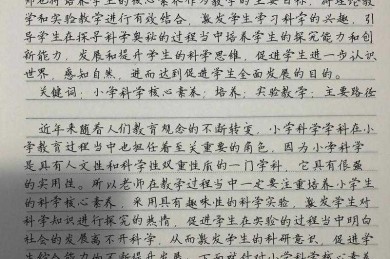 师老师培养学生的核心素养作为教学的主要目标,将理论教
学和实验教学进行有效结合,激发学生学习科学的兴趣,引
导学生在探寻科学奥秘的过程当中培养学生的探究能力和创
新能力,发展和提升学生的科学思维,促进学生进一步认识
世界,感知自然,进而达到促进学生全面发展的目的。
关键词:小学科学核心素养;培养;实验教学;主要路径
近年来随着人们教育观念的不断转变,小学科学学科在小
学教育过程当中也担任着至关重要的角色,因为小学科学
是具有人文性和科学性双重性质的一门学科,它具有很强
的实用性。所以老师在教学过程当中一定要注重培养小学生
的科学核心素养,采用具有趣味性的科学实验,激发学生对
科学知识进行探究的热情,促进学生在实验的过程当中明白
社会的发展离不开科学,从而激发学生的科研意识,促进学
生综合能力的不断提升发展。下面就针对小学科学核心素养